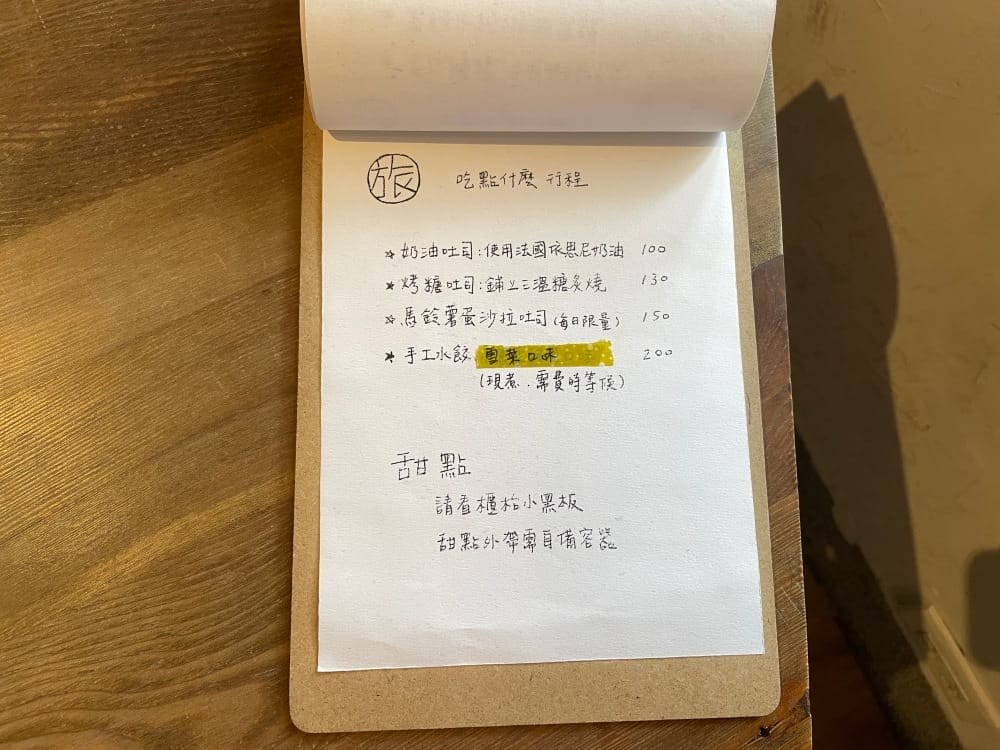 旅 吃點什麼 行程
☆奶油吐司:使用法國依思尼奶油 100
★烤糖吐司:鋪上三溫糖炙燒 130
☆馬鈴薯蛋沙拉吐司(每日限量) 150
★手工水餃 雪菜口味 200
(現煮.需費時等候)
甜點
請看櫃枱小黑板
甜點外帶需自備容器